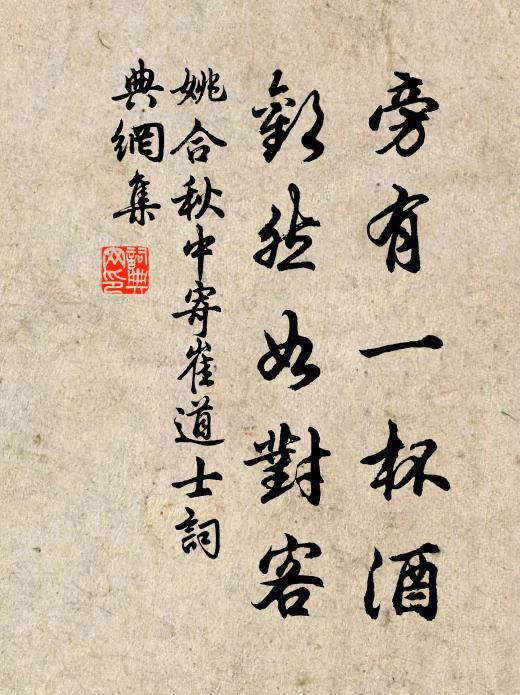 旁有一杯酒
歡然如對客
姚合秋中寄崔道士詞
典網集
詞典
网印